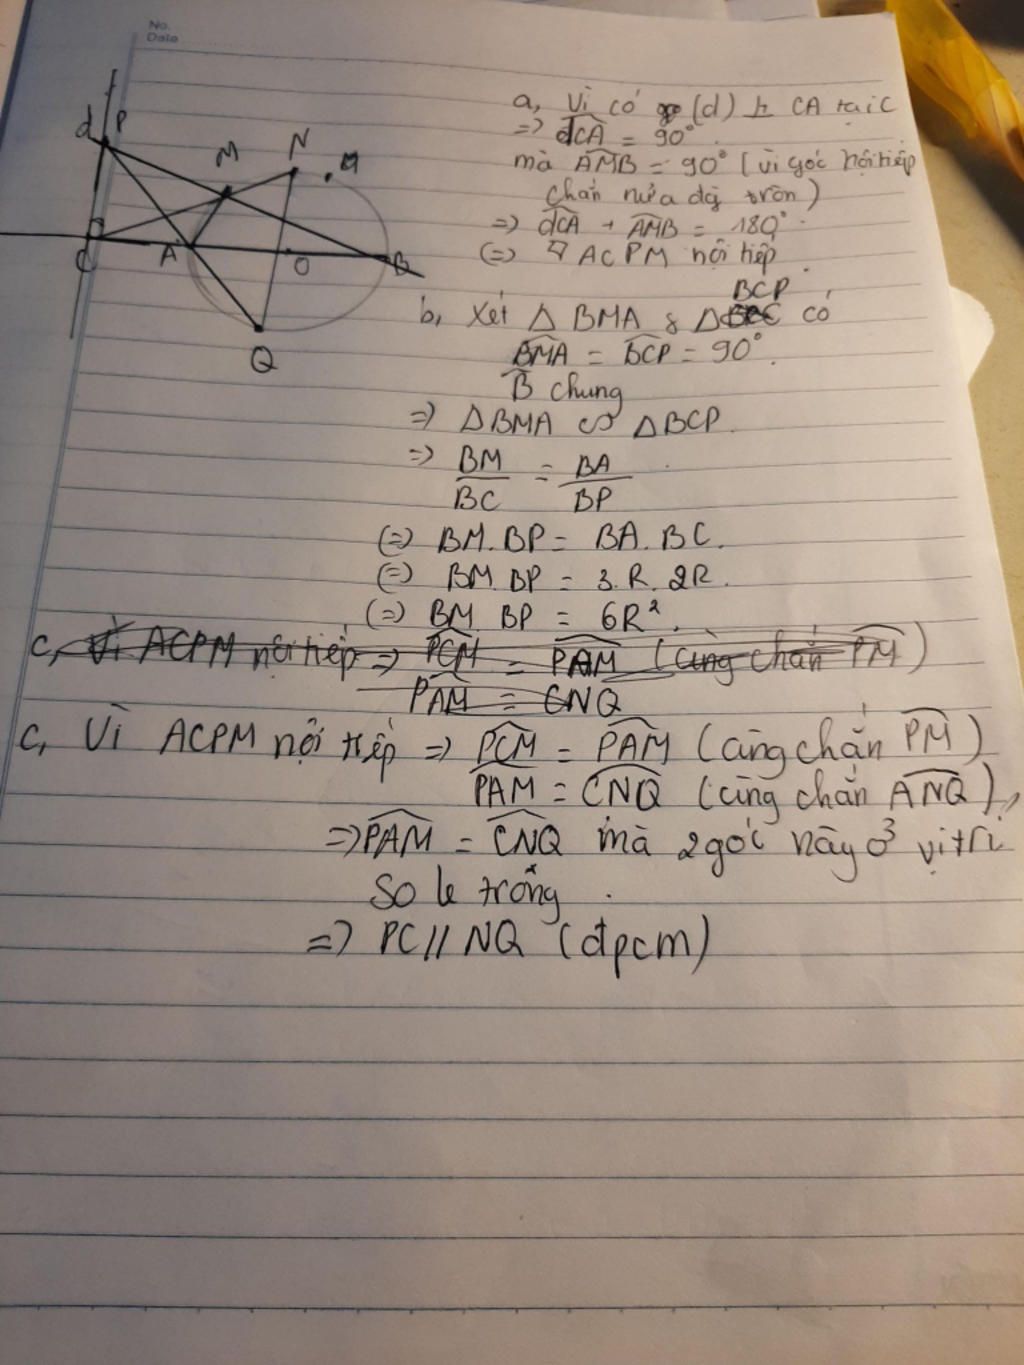 No.
Date
d P
M
N
C
A
O
B
Q
a, Vì có (d) ⊥ CA tại C
=> dCA = 90°
mà AMB = 90° (vì góc nội tiếp
chắn nửa đg tròn)
=> dCA + AMB = 180°
(=) ACPM nội tiếp.
BCP
b, Xét Δ BMA & Δ có
BMA = BCP = 90°.
B chung
=> Δ BMA ∽ Δ BCP
=> BM/BC = BA/BP
(=) BM. BP = BA. BC.
(=) BM. BP = 3.R. 2R.
(=) BM. BP = 6R².
c, Vì ACPM nội tiếp => PCM = PAM (cùng chắn PM)
PAM = CNQ
c, Vì ACPM nội tiếp => PCM = PAM (cùng chắn PM)
PAM = CNQ (cùng chắn ANQ),
=> PAM = CNQ mà 2 góc này ở vị trí
so le trong.
=> PC // NQ (đpcm)